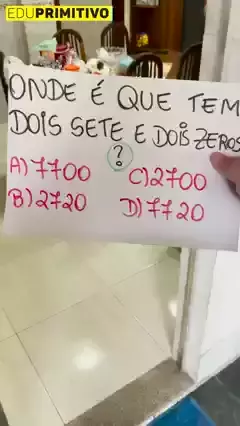 EDUPRIMITIVO
ONDE É QUE TEM
DOIS SETE E DOIS ZEROS
?
A) 7700 C) 2700
B) 2720 D) 7720